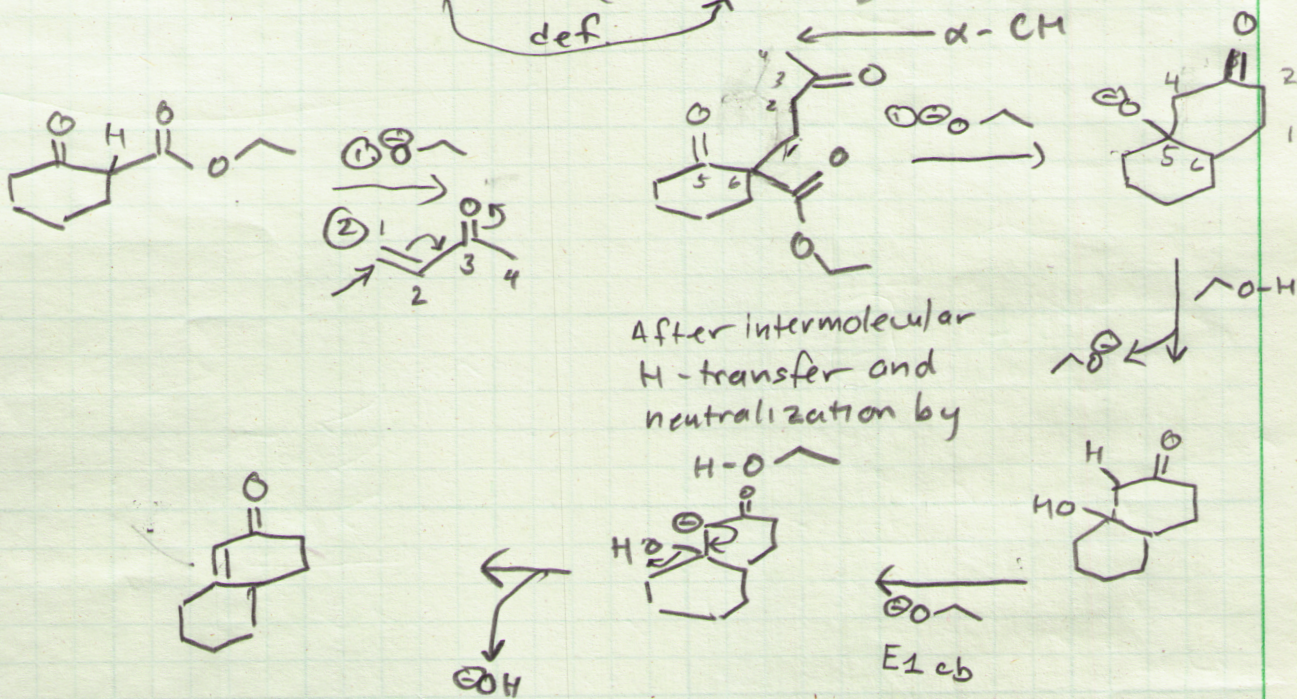 def.
α - CH
O
H
O
O
① ⊖O
② 1
O
2
3
4
O
4
3
O
2
1
5
6
O
O
① ⊖O
O
3
2
4
⊖O
1
5
6
O-H
⊖O
After intermolecular
H-transfer and
neutralization by
H-O
O
H
O
HO
⊖O
E1cb
O
⊖
HO
⊖OH
O